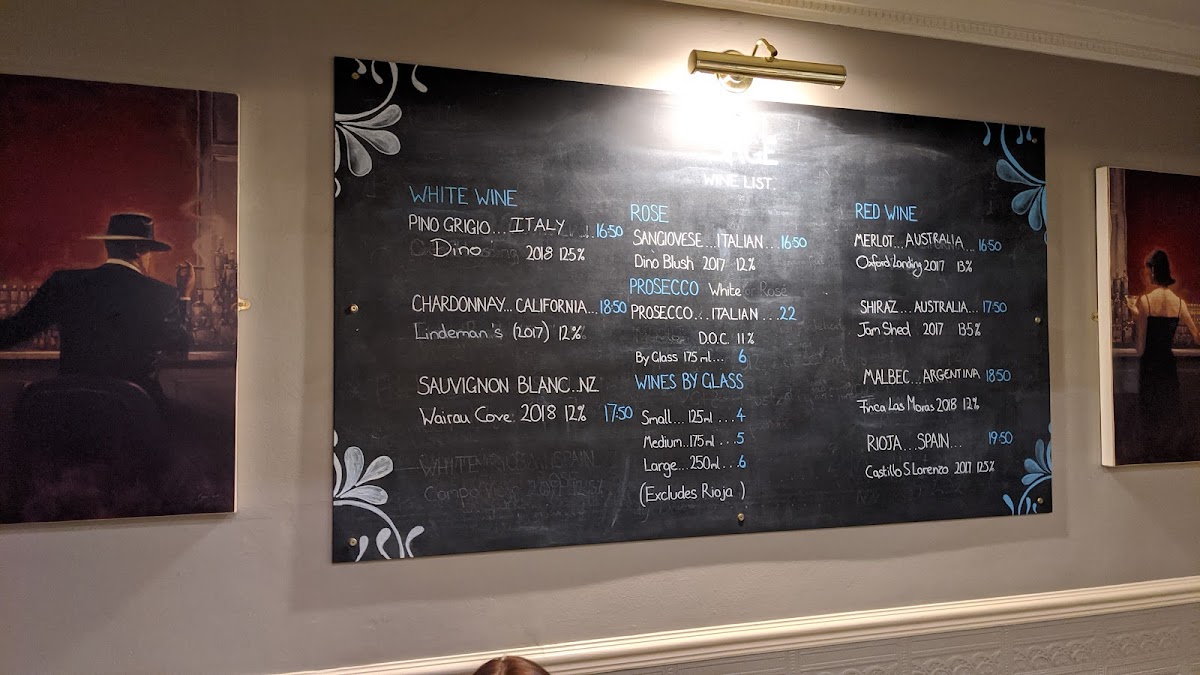 WINE LIST.
WHITE WINE
PINO GRIGIO... ITALY ... 16·50
Dino 2018 12.5%
CHARDONNAY... CALIFORNIA... 18·50
Lindeman's (2017) 12%
SAUVIGNON BLANC..NZ
Wairau Cove. 2018 12% 17·50
WHITE RIOJA SPAIN
ROSE
SANGIOVESE...ITALIAN...16·50
Dino Blush 2017 12%
PROSECCO White or Rosé
PROSECCO...ITALIAN...22
D.O.C. 11%
By Glass 175 ml... 6
WINES BY GLASS
Small... 125ml ...4
Medium..175ml ...5
Large...250ml...6
(Excludes Rioja)
RED WINE
MERLOT...AUSTRALIA... 16·50
Oxford Landing 2017 13%
SHIRAZ...AUSTRALIA... 17·50
Jam Shed 2017 13.5%
MALBEC...ARGENTINA 18·50
Finca Las Moras 2018 12%
RIOJA...SPAIN... 19·50
Castillo S Lorenzo 2017 12.5%